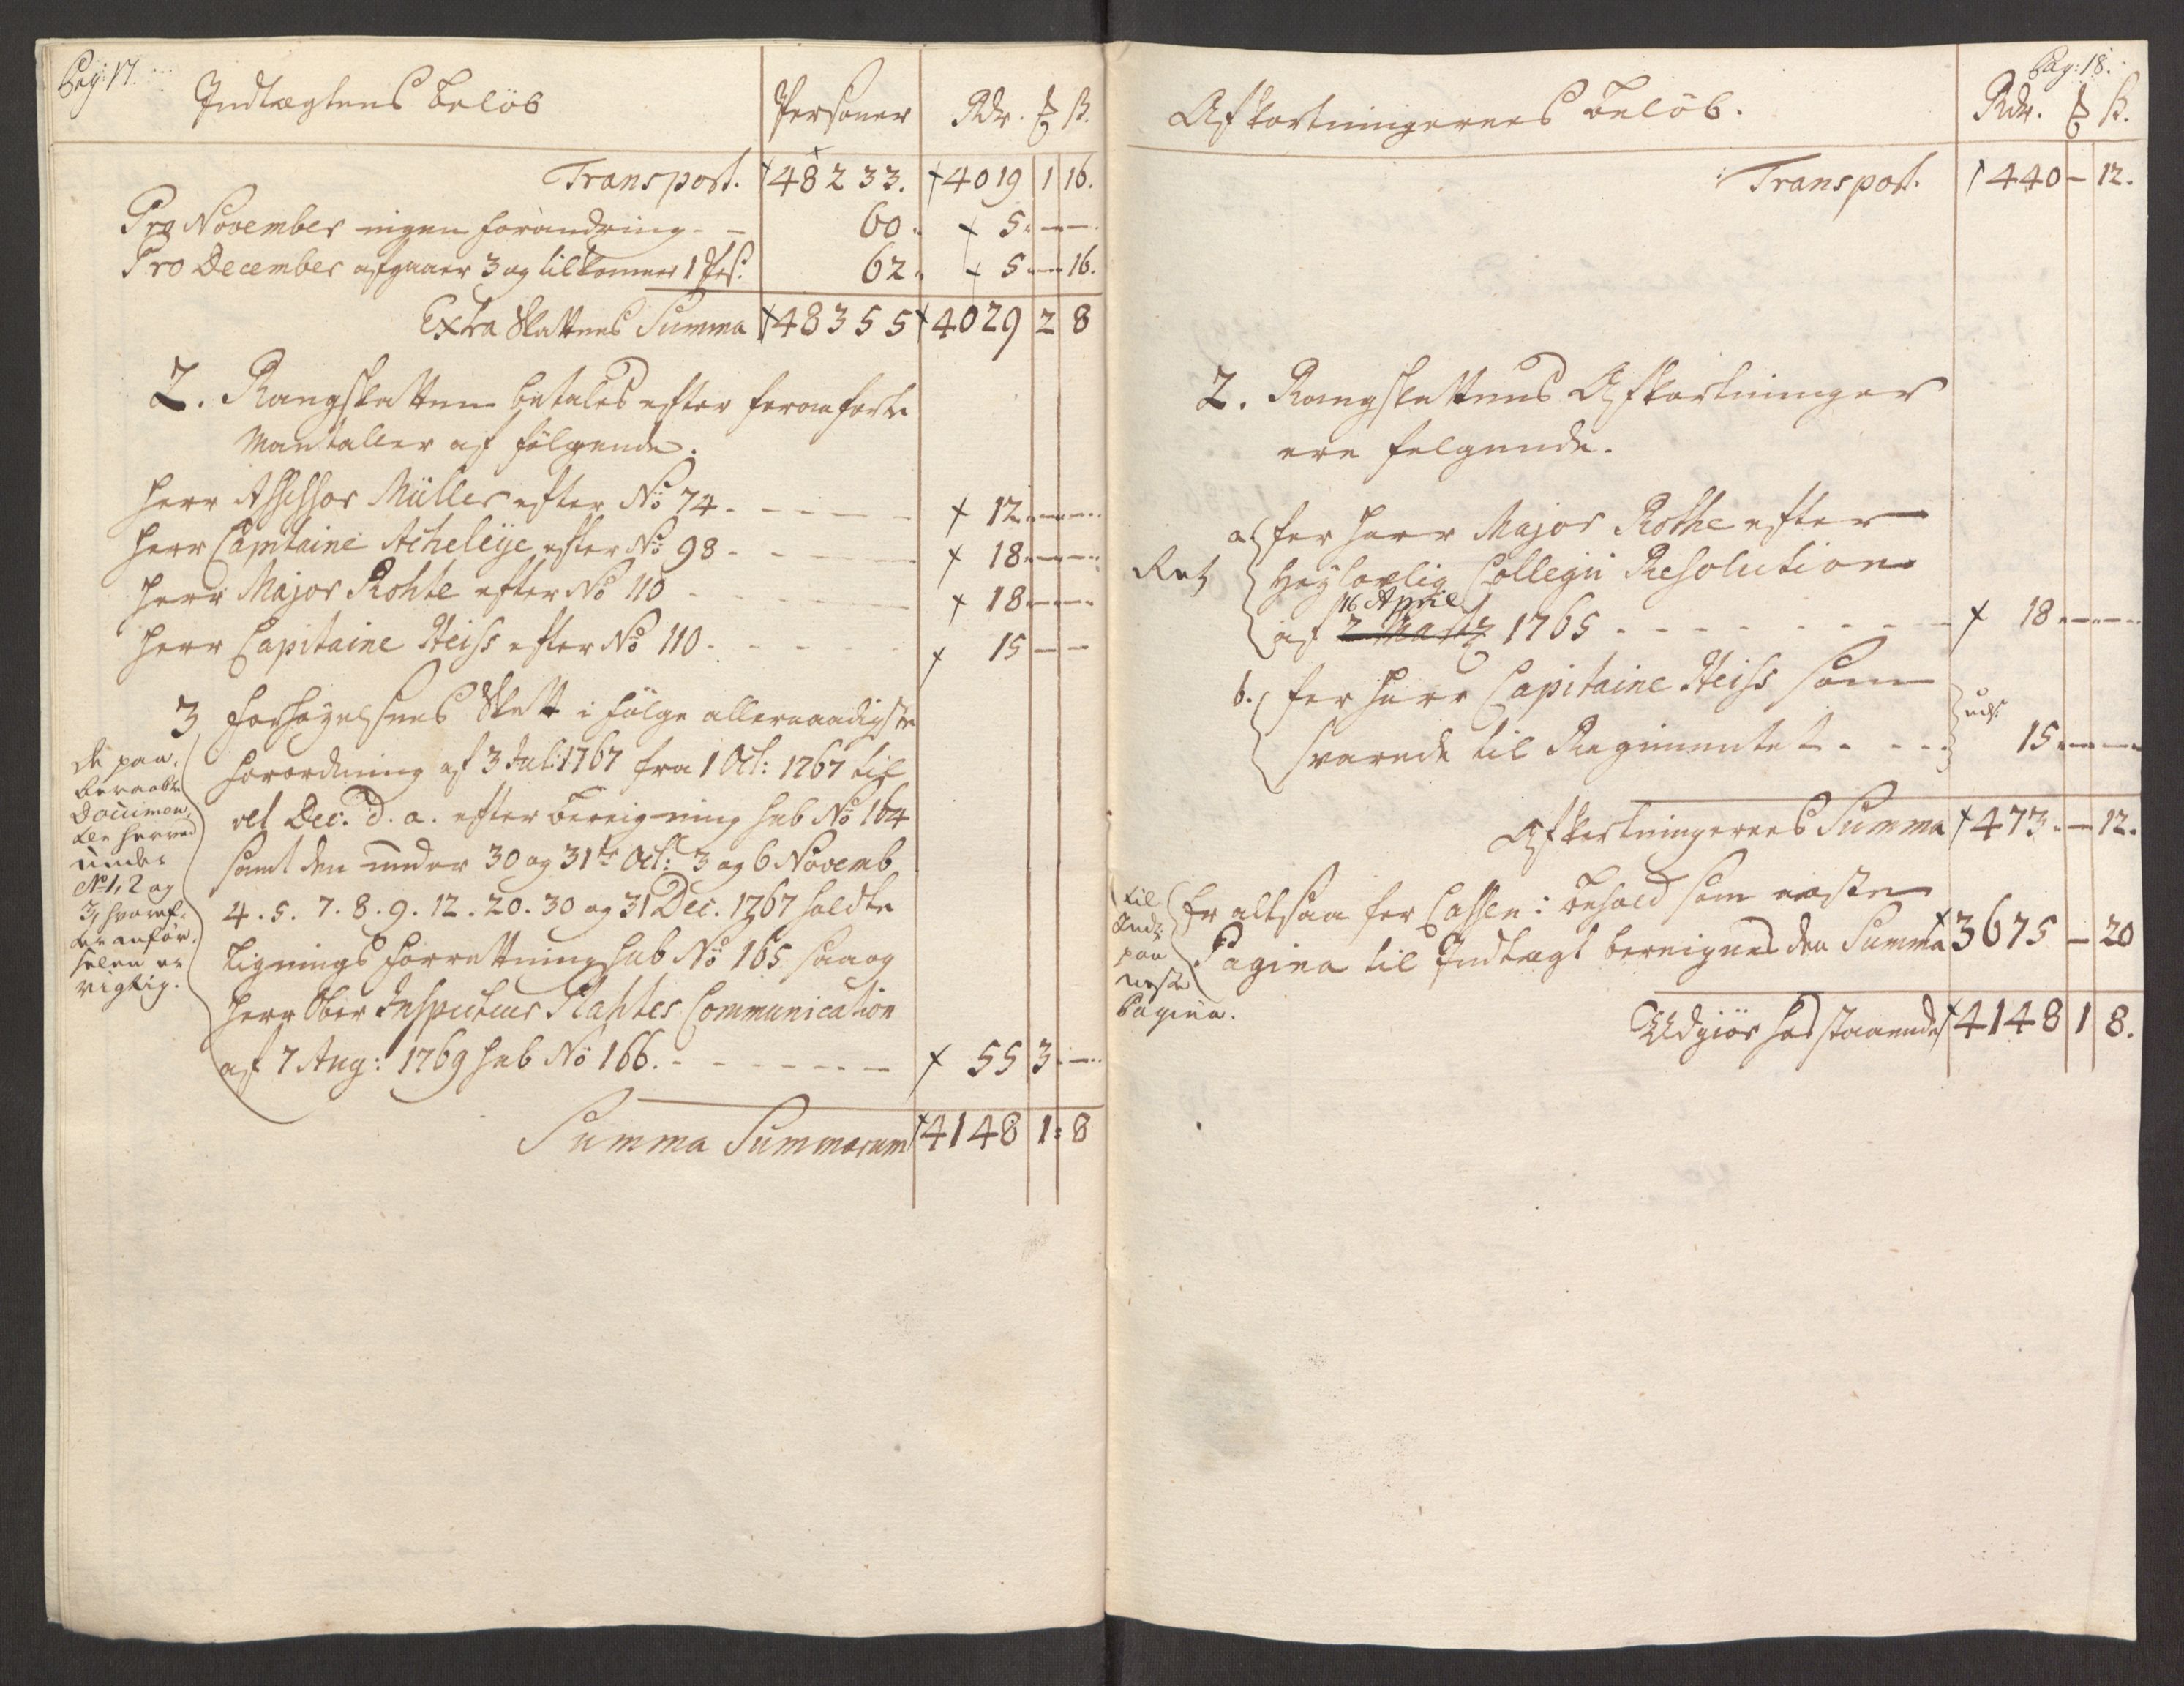 Pag: 17.
Indtægtens Beløb Personer Rdr. ℔ ß.
Transport. 48233. 4019 1 16.
Pro November ingen forandring - - 60. 5. — —
Pro December afgaaer 3 og tilkommer 1 Pers: 62. 5 — 16.
Extra Skattens Summa 48355 4029 2 8
2. Rangskatten betales efter foranførte
Mantaller af følgende.
Herr Assessor Müller efter No 74. - - - - 12. — —
Herr Capitaine Acheleye efter No 98 - - - - 18. — —
Herr Major Rohte efter No 110 - - - - 18 — —
Herr Capitaine Heiss efter No 110. - - - - 15 — —
3 Forhøyelsens Skatt i følge allernaadigste
Forordning af 3 Jul: 1767 fra 1 Oct: 1767 til
ult Dec. d. a. efter Bereigning sub No 164
samt den under 30 og 31te Oct: 3 og 6 Novemb
4. 5. 7. 8. 9. 12. 20. 30 og 31 Dec. 1767 holdte
Lignings Forretning sub No 165 saa og
Herr Ober Inspecteur Communication
af 7 Aug: 1769 sub No 166. - - - - - 55 3. —
de paa-
beraabte
Documen-
ter herved
under
No 1, 2 og
3, hvoref-
ter anfør-
selen er
rigtig.
Summa Summarum 4148 1: 8
Pag: 18.
Afkortningernes Beløb. Rdr. ℔ ß.
Transport. 440 — 12.
2. Rangskattens Afkortninger
ere følgende.
a. for Herr Major Rothe efter
Ret Høylovlig Collegii Resolution
16 April
af 2 Martz 1765 - - - - - - 18. — —
b. for Herr Capitaine Heiss som
svarede til Regimentet - - - 15. — —
Afkortningernes Summa 473. — 12.
Er altsaa for Cassen: Behold som næste
Pagina til Indtægt bereignes den Summa 3675 — 20
til
Indt:
paa
neste
Pagina.
Udgiør hosstaaende 4148 1 8.